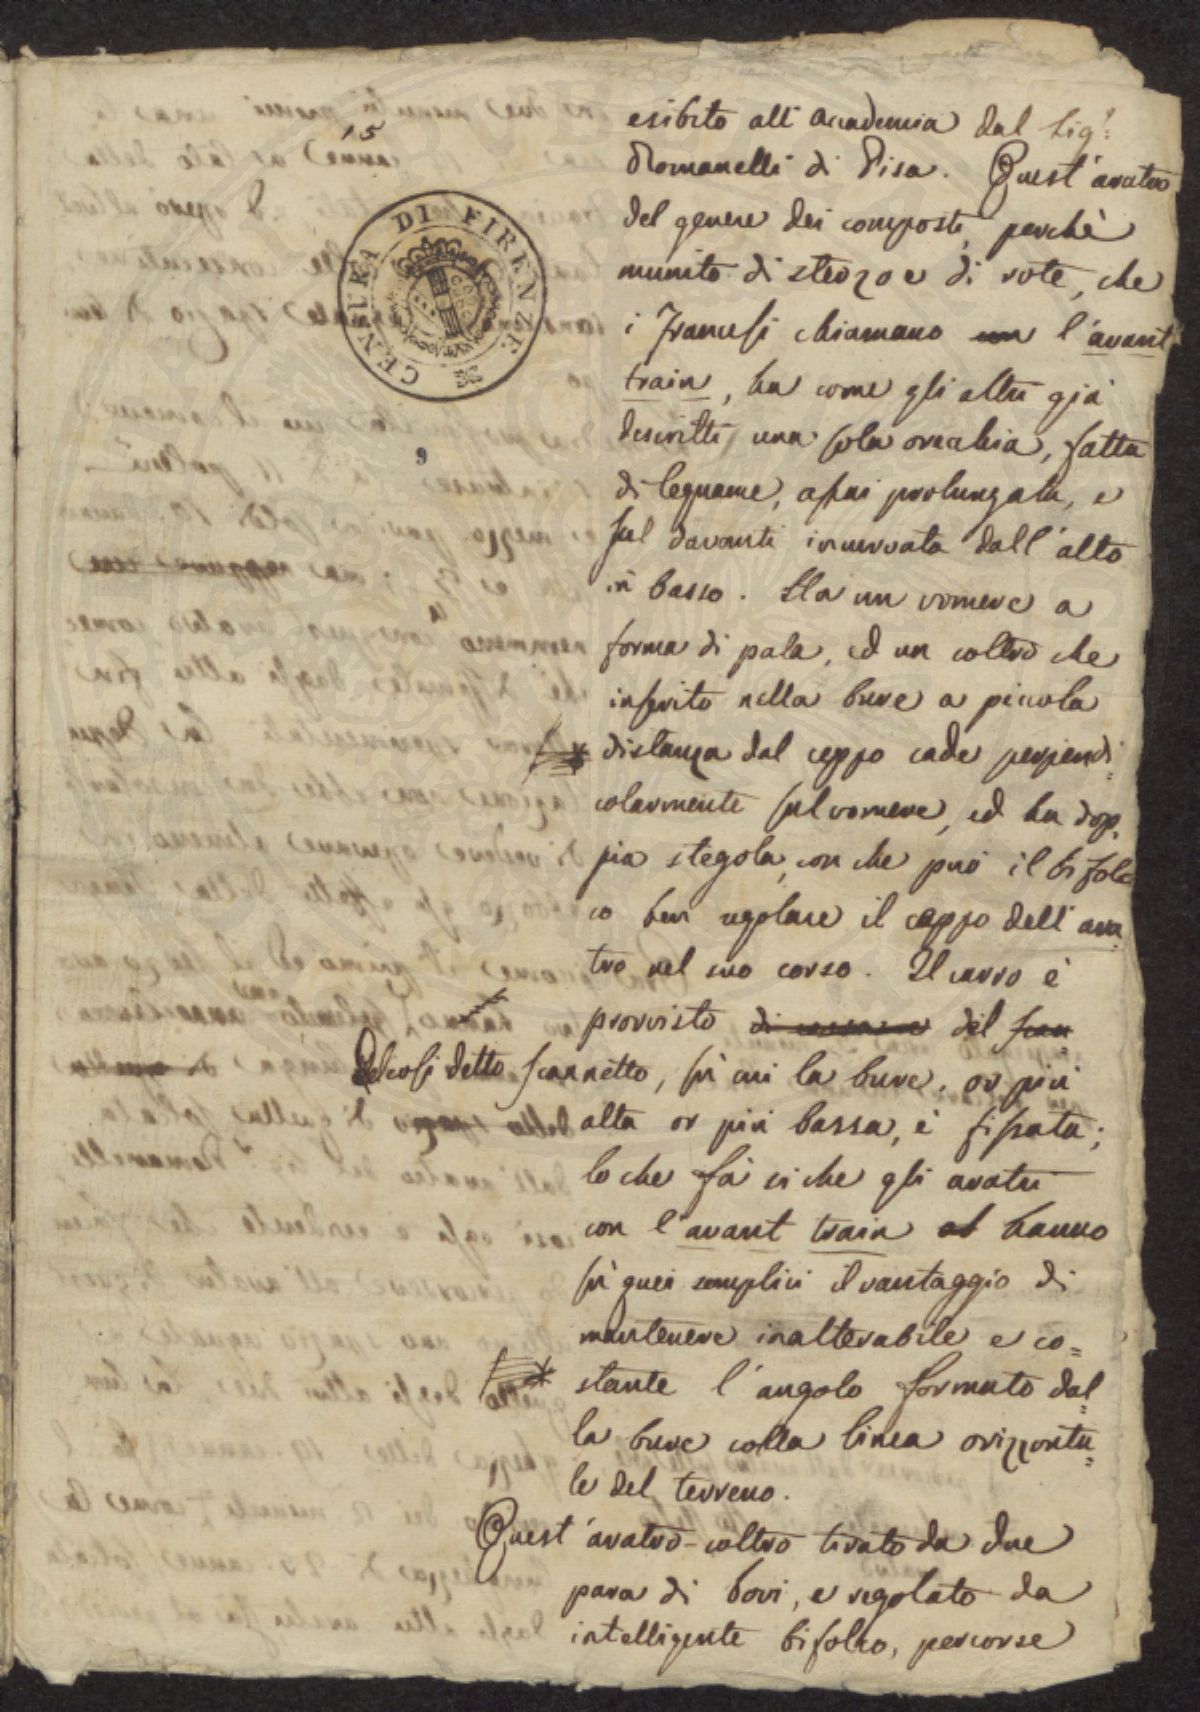 15
CENSURA DI FIRENZE
9
esibito all'Accademia dal Sig.r
Romanelli di Pisa. Quest'aratro
del genere dei composti, perchè
munito di sterzo e di rote, che
i Francesi chiamano un l'avant
train, ha come gli altri già
descritti, una sola orecchia, fatta
di legname, assai prolungata, e
sul davanti incurvata dall'alto
in basso. Ha un vomere a
forma di pala, ed un coltro che
inserito nella bure a piccola
distanza dal ceppo cade perpendi=
colarmente sul vomere, ed ha dop=
pia stegola, con che può il bifol
co ben regolare il ceppo dell'ara=
tro nel suo corso. Il carro è
provvisto di del scan
così detto scannetto, su cui la bure, or più
alta or più bassa, è fissata;
lo che fà si che gli aratri
con l'avant train hanno
su quei semplici il vantaggio di
mantenere inalterabile e co=
stante l'angolo formato dal=
la bure colla linea orizzonta=
le del terreno.
Quest'aratro-coltro tirato da due
para di bovi, e regolato da
intelligente bifolco, percorse